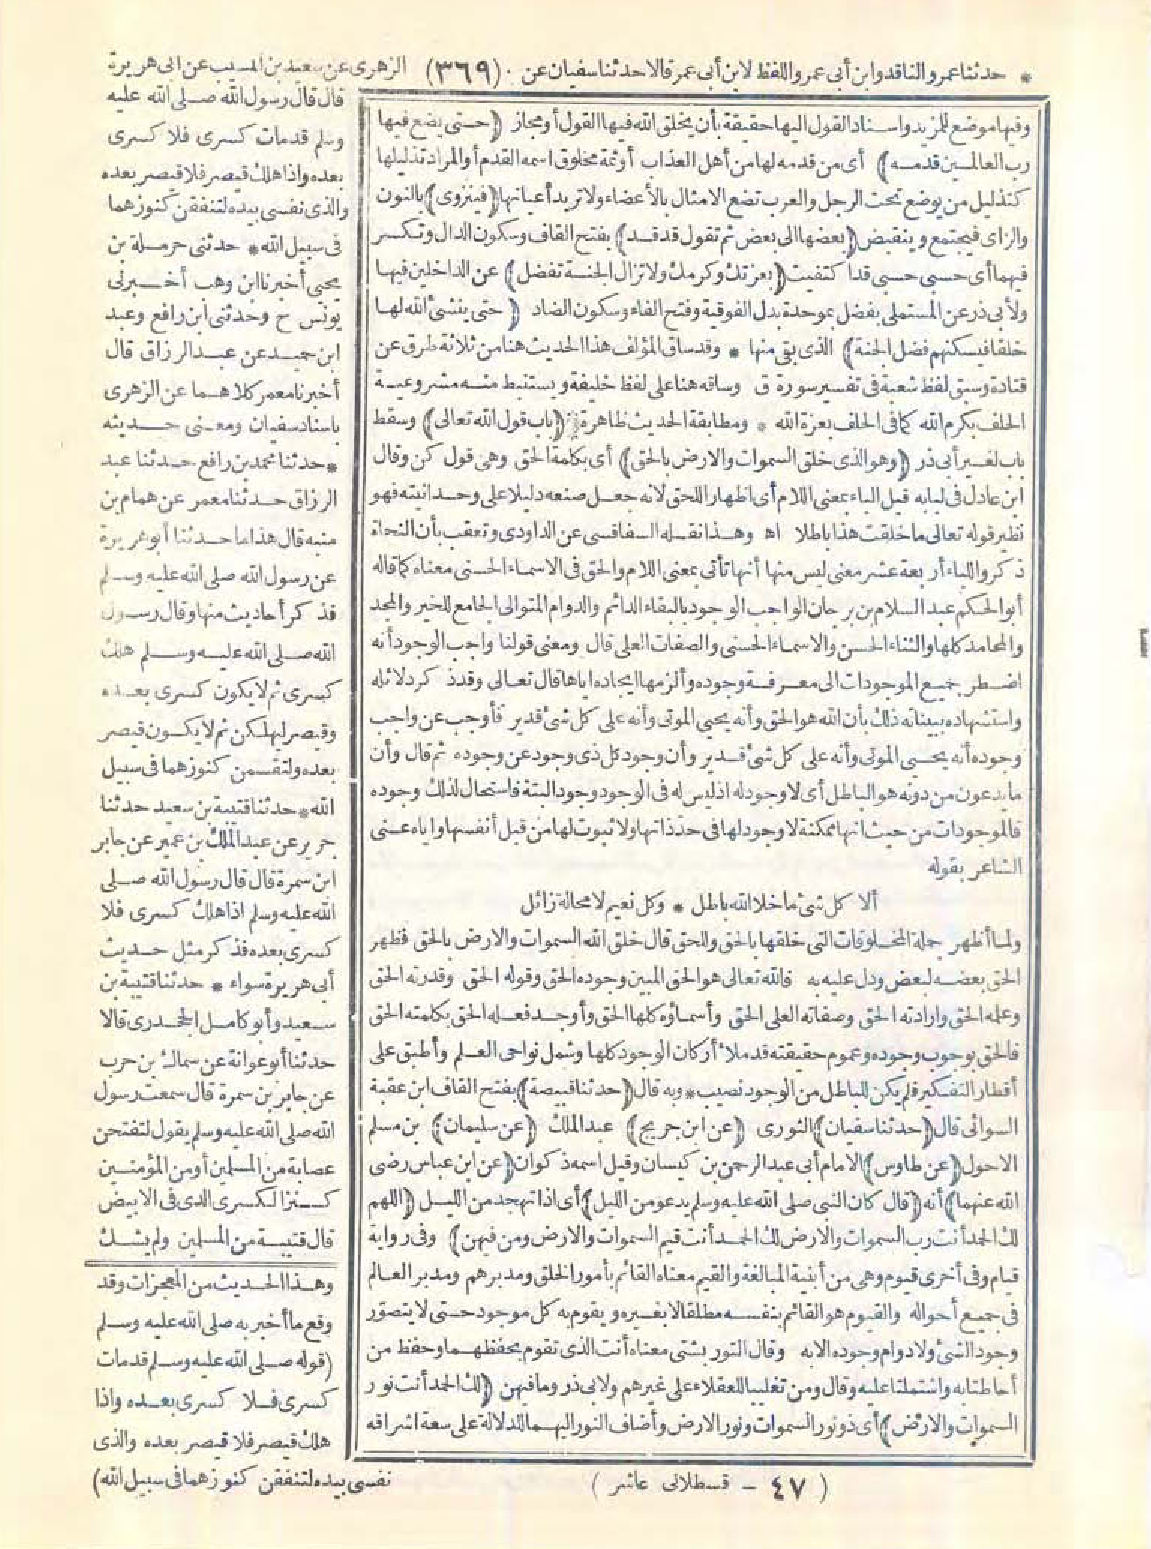 * حدثنا عمرو الناقد وابن أبى عمر واللفظ لابن أبى عمر قالا حدثنا سفيان عن (٣٦٩) الزهرى عن سعيد بن المسيب عن أبى هريرة
قال قال رسول الله صلى الله عليه
وسلم قد مات كسرى فلا كسرى
بعده واذا هلك قيصر فلا قيصر بعده
والذى نفسى بيده لتنفقن كنوزهما
فى سبيل الله * حدثنى حرملة بن
يحيى أخبرنا ابن وهب أخبرنى
يونس ح وحدثنى ابن رافع وعبد
ابن حميد عن عبد الرزاق قال
أخبرنا معمر كلاهما عن الزهرى
باسناد سفيان ومعنى حديثه
* حدثنا محمد بن رافع حدثنا عبد
الرزاق حدثنا معمر عن همام بن
منبه قال هذا ما حدثنا أبو هريرة
عن رسول الله صلى الله عليه وسلم
فذكر أحاديث منها وقال رسول
الله صلى الله عليه وسلم هلك
كسرى ثم لا يكون كسرى بعده
وقيصر ليهلكن ثم لا يكون قيصر
بعده ولتقسمن كنوزهما فى سبيل
الله * حدثنا قتيبة بن سعيد حدثنا
جرير عن عبد الملك بن عمير عن جابر
ابن سمرة قال قال رسول الله صلى
الله عليه وسلم اذا هلك كسرى فلا
كسرى بعده فذكر مثل حديث
أبى هريرة سواء * حدثنا قتيبة بن
سعيد وأبو كامل الجحدرى قالا
حدثنا أبو عوانة عن سماك بن حرب
عن جابر بن سمرة قال سمعت رسول
الله صلى الله عليه وسلم يقول لتفتحن
عصابة من المسلمين أو من المؤمنين
كنز الكسرى الذى فى الابيض
قال قتيبة من المسلمين ولم يشك
وهذا الحديث من المعجزات وقد
وقع ما أخبر به صلى الله عليه وسلم
(قوله صلى الله عليه وسلم قد مات
كسرى فلا كسرى بعده واذا
هلك قيصر فلا قيصر بعده والذى
نفسى بيده لتنفقن كنوزهما فى سبيل الله)
وفيها موضع للمزيد واسناد القول اليها حقيقة بأن يخلق الله فيها القول أو مجاز (حتى يضع فيها
رب العالمين قدمه) أى من قدمه لها من أهل العذاب أو ثمة مخلوق اسمه القدم أو المراد تذليلها
كتذليل من يوضع تحت الرجل والعرب تضع الامثال بالأعضاء ولا تريد أعيانها (فينزوى) بالنون
والزاى فيجتمع وينقبض (بعضها الى بعض ثم تقول قد قد) بفتح القاف وسكون الدال وتكسر
فيهما أى حسبى حسبى قد اكتفيت (بعزتك وكرمك ولا تزال الجنة تفضل) عن الداخلين فيها
ولأبى ذر عن المستملى بفضل بموحدة بدل الفوقية وفتح الفاء وسكون الضاد (حتى ينشئ الله لها
خلقا فيسكنهم فضل الجنة) الذى بقى منها * وقد ساق المؤلف هذا الحديث هنا من ثلاثة طرق عن
قتادة وسبق لفظ شعبة فى تفسير سورة ق وساقه هنا على لفظ خليفة ويستنبط منه مشروعية
الحلف بكرم الله كما فى الحلف بعزة الله * ومطابقة الحديث ظاهرة (باب قول الله تعالى) وسقط
باب لغير أبى ذر (وهو الذى خلق السموات والارض بالحق) أى بكلمة الحق وهى قول كن وقال
ابن عادل فى لبابه قيل الباء بمعنى اللام أى اظهارا للحق لانه جعل صنعه دليلا على وحدانيته فهو
نظير قوله تعالى ما خلقت هذا باطلا اه وهذا نقله السفاقسى عن الداودى وتعقب بأن النحاة
ذكروا للباء أربعة عشر معنى ليس منها أنها تأتى بمعنى اللام والحق فى الاسماء الحسنى معناه كما قاله
أبو الحكم عبد السلام بن برجان الواجب الوجود بالبقاء الدائم والدوام المتوالى الجامع للخير والمجد
والمحامد كلها والثناء الحسن والاسماء الحسنى والصفات العلى قال ومعنى قولنا واجب الوجود أنه
اضطر جميع الموجودات الى معرفة وجوده وألزمها ايجاده اياها قال تعالى وقد ذكر دلائله
واستشهاده ببيناته ذلك بأن الله هو الحق وأنه يحيى الموتى وأنه على كل شئ قدير فأوجب عن واجب
وجوده أنه يحيى الموتى وأنه على كل شئ قدير وأن وجود كل ذى وجود عن وجوده ثم قال وأن
ما يدعون من دونه هو الباطل أى لا وجود له اذ ليس له فى الوجود وجود البتة فاستحال لذلك وجوده
فالموجودات من حيث انها ممكنة لا وجود لها فى حد ذاتها ولا ثبوت لها من قبل أنفسها واياه عنى
الشاعر بقوله
ألا كل شئ ما خلا الله باطل * وكل نعيم لا محالة زائل
ولما أظهر جملة المخلوقات التى خلقها بالحق وللحق قال خلق الله السموات والارض بالحق فظهر
الحق بعضه لبعض ودل عليه به فالله تعالى هو الحق المبين وجوده الحق وقوله الحق وقدرته الحق
وعلمه الحق وارادته الحق وصفاته العلى الحق وأسماؤه كلها الحق وأوجد فعله الحق بكلمته الحق
فالحق بوجوب وجوده وعموم حقيقته قد ملأ أركان الوجود كلها وشمل نواحى العلم وأطبق على
أقطار التفكير فلم يكن للباطل من الوجود نصيب * وبه قال (حدثنا قبيصة) بفتح القاف ابن عقبة
السوائى قال (حدثنا سفيان) الثورى (عن ابن جريج) عبد الملك (عن سليمان) بن مسلم
الاحول (عن طاوس) الامام أبى عبد الرحمن بن كيسان وقيل اسمه ذكوان (عن ابن عباس رضى
الله عنهما) أنه (قال كان النبى صلى الله عليه وسلم يدعو من الليل) أى اذا تهجد من الليل (اللهم
لك الحمد أنت رب السموات والارض لك الحمد أنت قيم السموات والارض ومن فيهن) وفى رواية
قيام وفى أخرى قيوم وهى من أبنية المبالغة والقيم معناه القائم بأمور الخلق ومدبرهم ومدبر العالم
فى جميع أحواله والقيوم هو القائم بنفسه مطلقا لا بغيره ويقوم به كل موجود حتى لا يتصور
وجود الشئ ولا دوام وجوده الا به وقال التوربشتى معناه أنت الذى تقوم بحفظهما وحفظ من
أحاطتا به واشتملتا عليه وقال ومن تغليبا للعقلاء على غيرهم ولابى ذر وما فيهن (لك الحمد أنت نور
السموات والارض) أى ذو نور السموات ونور الارض وأضاف النور اليهما للدلالة على سعة اشراقه
(٤٧ - قسطلانى عاشر)